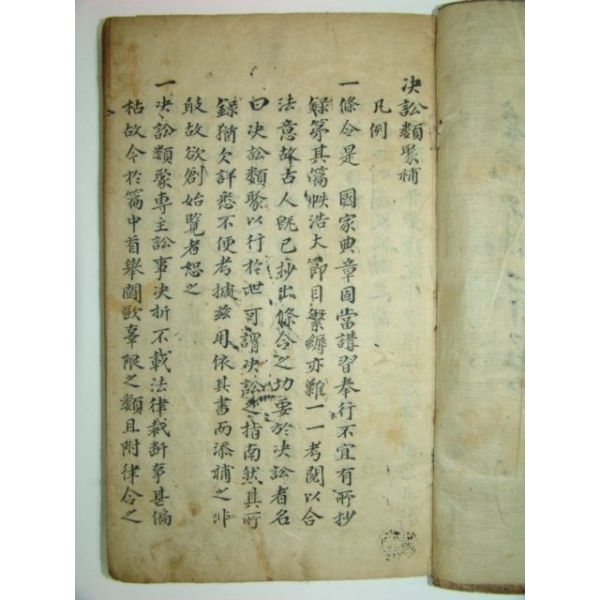 决訟類聚補
凡例
一條令是 國家典章固當講習奉行不宜有所抄
錄第其篇帙浩大節目繁縟亦難一一考閱以合
法意故古人旣已抄出條令之切要於决訟者名
曰决訟類聚以行於世可謂决訟之指南然其所
錄猶欠詳悉不便考據玆用依其書而添補之非
敢故欲創始覽者恕之
一决訟類聚專主訟事决折不載法律裁斷事甚偏
枯故今於篇中首擧鬪敺辜限之類且附律令之